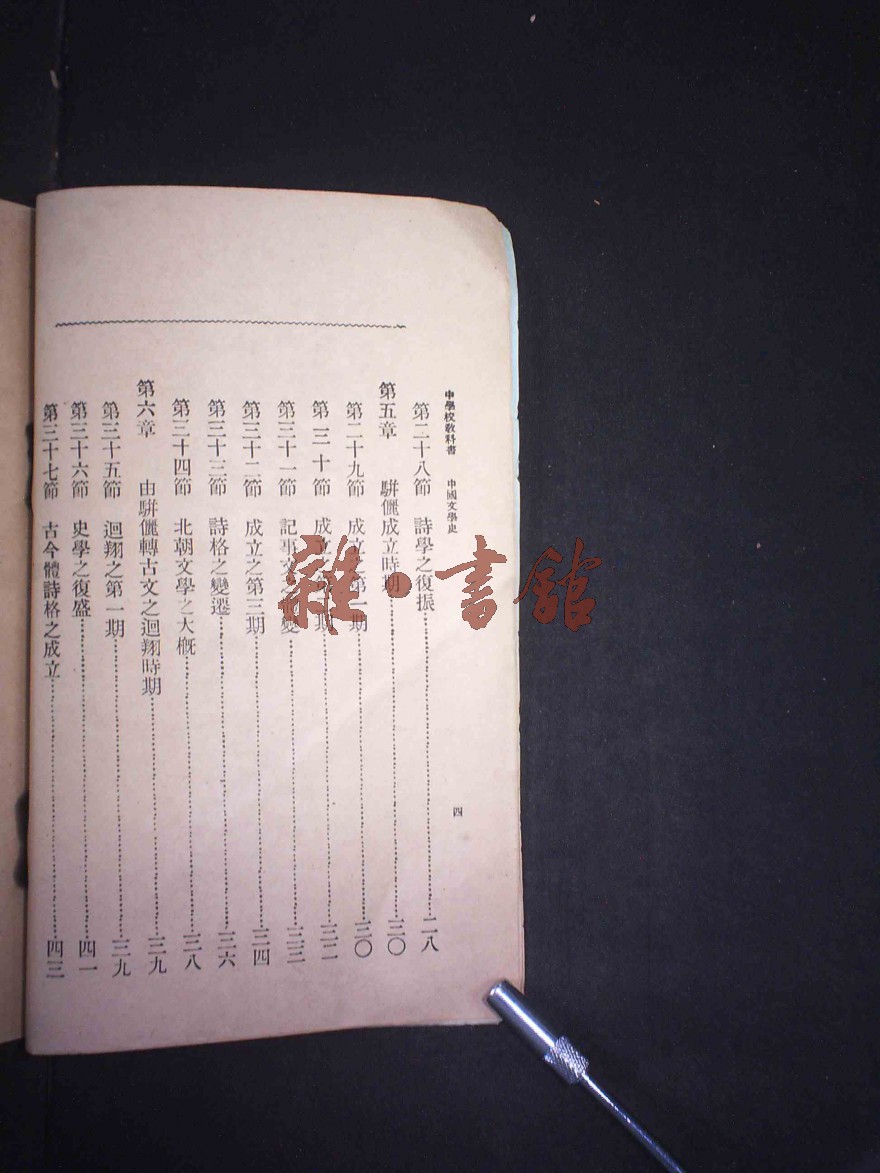 中學校敎科書 中國文學史 四
第二十八節 詩學之復振……二八
第五章 駢儷成立時期……三〇
第二十九節 成立之第一期……三〇
第三十節 成立之第二期……三二
第三十一節 記事文之變……三三
第三十二節 成立之第三期……三四
第三十三節 詩格之變遷……三六
第三十四節 北朝文學之大槪……三八
第六章 由駢儷轉古文之迴翔時期……三九
第三十五節 迴翔之第一期……三九
第三十六節 史學之復盛……四一
第三十七節 古今體詩格之成立……四三
雜·書館